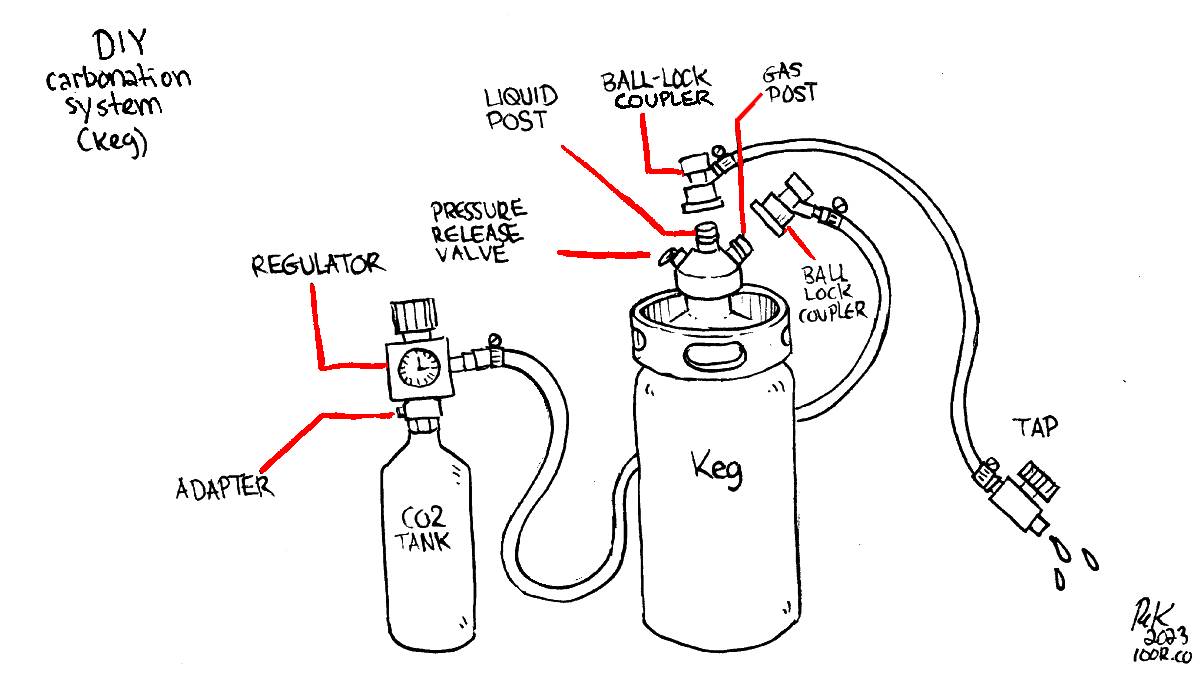 DIY
carbonation
system
(keg)
LIQUID
POST
BALL-LOCK
COUPLER
GAS
POST
PRESSURE
RELEASE
VALVE
REGULATOR
BALL
LOCK
COUPLER
ADAPTER
CO2
TANK
Keg
TAP
ReK
2023
100R.CO